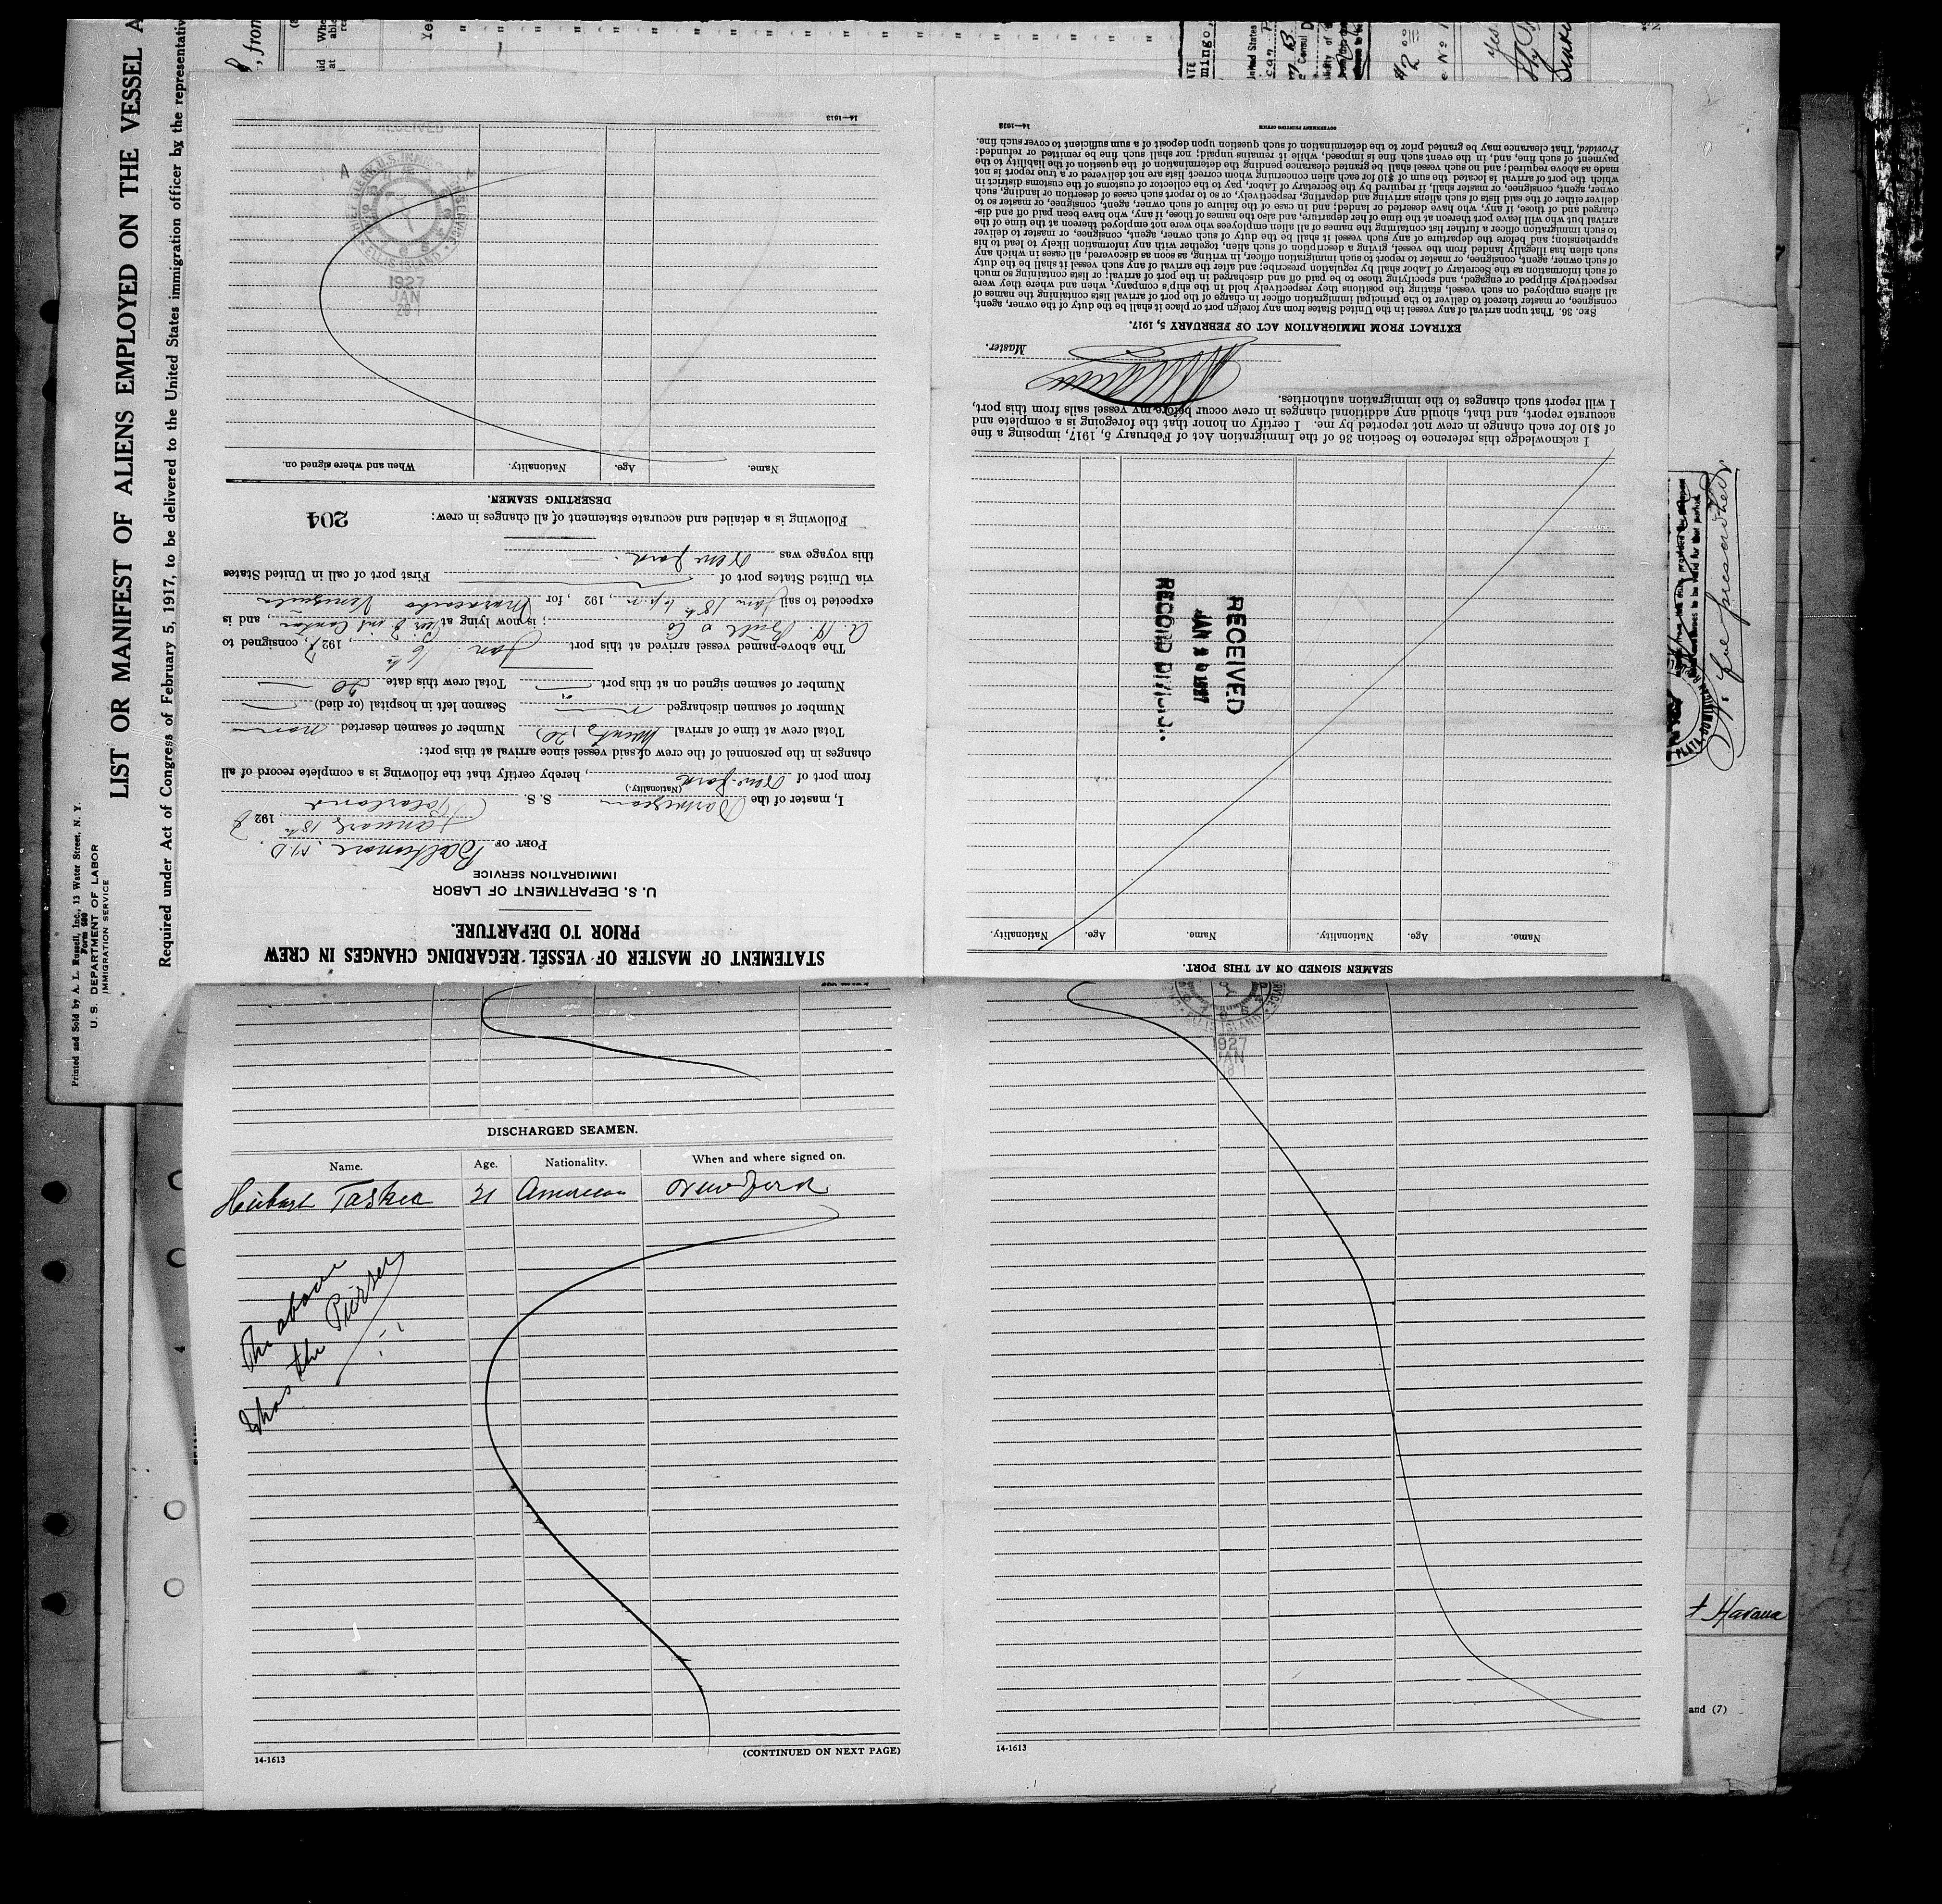 LIST OR MANIFEST OF ALIENS EMPLOYED ON THE VESSEL A
Required under Act of Congress of February 5, 1917, to be delivered to the United States immigration officer by the representativ
Printed and Sold by A. L. Russell, Inc., 13 Water Street, N. Y.
Form 680
U. S. DEPARTMENT OF LABOR
IMMIGRATION SERVICE
, from
STATEMENT OF MASTER OF VESSEL REGARDING CHANGES IN CREW
PRIOR TO DEPARTURE.
U. S. DEPARTMENT OF LABOR
IMMIGRATION SERVICE
PORT OF Baltimore, M.D.
January 18th 192
I, master of the S. S.
(Nationality.)
from port of New York, hereby certify that the following is a complete record of all
changes in the personnel of the crew of said vessel since arrival at this port:
Total crew at time of arrival Twenty (20) Number of seamen deserted none
Number of seamen discharged Seamen left in hospital (or died)
Number of seamen signed on at this port Total crew this date 20
The above-named vessel arrived at this port Jan. 16th, 1927, consigned to
A. H. Bull & Co; is now lying at, and is
expected to sail Jan 18th 6 p.m., 192 , for Maracaibo Venezuela
via United States port of First port of call in United States
this voyage was New York.
Following is a detailed and accurate statement of all changes in crew:
204
DESERTING SEAMEN.
Name. Age. Nationality. When and where signed on.
1927
JAN
28
14—1613
SEAMEN SIGNED ON AT THIS PORT.
Name. Age. Nationality. Name. Age. Nationality.
RECEIVED
JAN 20 1927
RECORD DIVISION
I acknowledge this reference to Section 36 of the Immigration Act of February 5, 1917, imposing a fine
of $10 for each change in crew not reported by me. I certify on honor that the foregoing is a complete and
accurate report, and that, should any additional changes in crew occur before my vessel sails from this port,
I will report such changes to the immigration authorities.
Master.
EXTRACT FROM IMMIGRATION ACT OF FEBRUARY 5, 1917.
SEC. 36. That upon arrival of any vessel in the United States from any foreign port or place it shall be the duty of the owner, agent,
consignee, or master thereof to deliver to the principal immigration officer in charge of the port of arrival lists containing the names of
all aliens employed on such vessel, stating the positions they respectively hold in the ship's company, when and where they were
respectively shipped or engaged, and specifying those to be paid off and discharged in the port of arrival; or lists containing so much
of such information as the Secretary of Labor shall by regulation prescribe; and after the arrival of any such vessel it shall be the duty
of such owner, agent, consignee, or master to report to such immigration officer, in writing, as soon as discovered, all cases in which any
such alien has illegally landed from the vessel, giving a description of such alien, together with any information likely to lead to his
apprehension; and before the departure of any such vessel it shall be the duty of such owner, agent, consignee, or master to deliver
to such immigration officer a further list containing the names of all alien employees who were not employed thereon at the time of the
arrival but who will leave port thereon at the time of her departure, and also the names of those, if any, who have been paid off and dis-
charged and of those, if any, who have deserted or landed; and in case of the failure of such owner, agent, consignee, or master so to
deliver either of the said lists of such aliens arriving and departing, respectively, or so to report such cases of desertion or landing, such
owner, agent, consignee, or master, shall, if required by the Secretary of Labor, pay to the collector of customs of the customs district in
which the port of arrival is located the sum of $10 for each alien concerning whom correct lists are not delivered or a true report is not
made as above required; and no such vessel shall be granted clearance pending the determination of the question of the liability to the
payment of such fine, and, in the event such fine is imposed, while it remains unpaid; nor shall such fine be remitted or refunded:
Provided, That clearance may be granted prior to the determination of such question upon deposit of a sum sufficient to cover such fine.
GOVERNMENT PRINTING OFFICE
14—1613
DISCHARGED SEAMEN.
Name. Age. Nationality. When and where signed on.
Herbert Tasker 21 American New York
The above
was the Purser
14-1613
(CONTINUED ON NEXT PAGE)
ELLIS ISLAND
1927
JAN
28
14-1613
t Havana
and (7)